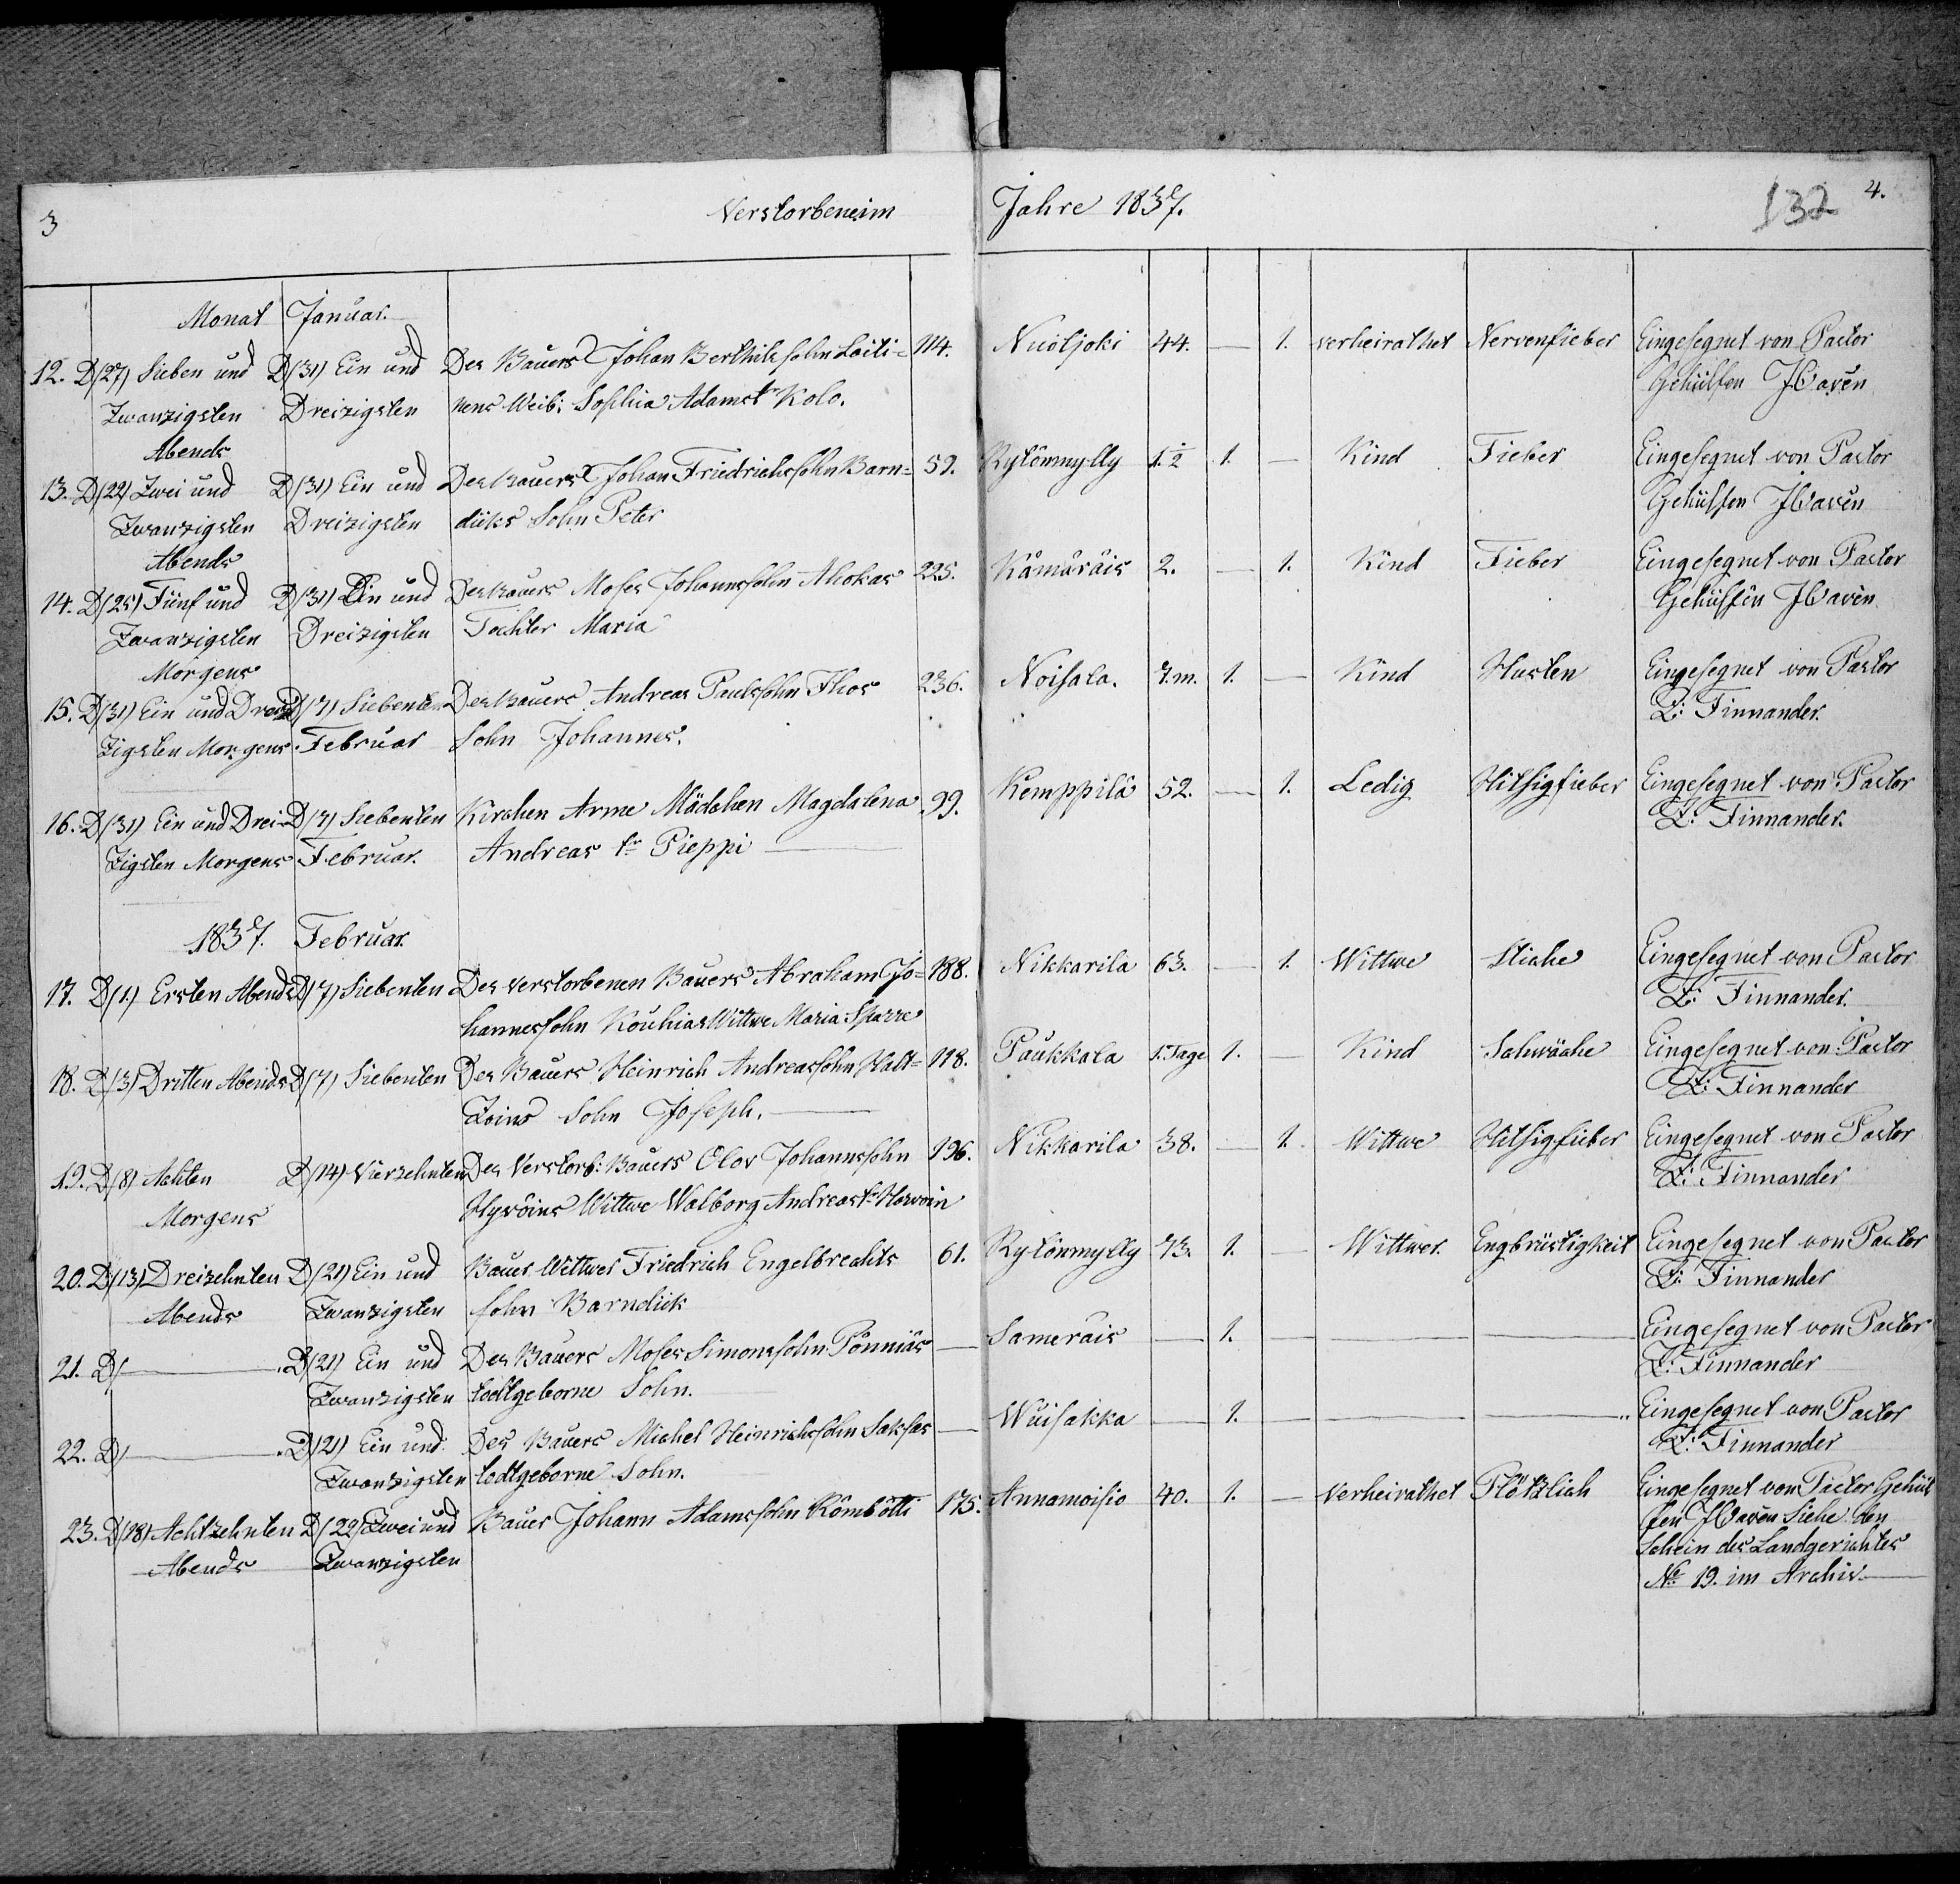 3 Verstorbene im Jahre 1837. 132 4.
Monat Januar.
12. D(27) Sieben und D(31) Ein und Des Bauers Johan Berthilssohn Laiti= 114. Nuoljoki 44. — 1. verheirathet Nervenfieber Eingesegnet von Pastor
Zwanzigsten Dreizigsten nens Weib: Sophia Adamst^r Kolo. Gehülfen
Abends
13. D(22) Zwei und D(31) Ein und Des Bauers Johan Friedrichssohn Barn= 59. Rytömmylly 1.½ 1. — Kind Fieber Eingesegnet von Pastor
Zwanzigsten Dreizigsten dicks Sohn Peter Gehülfen
Abends
14. D(25) Fünf und D(31) Ein und Des Bauers Moses Johannssohn Ahokas 225. Kämäräis 2. — 1. Kind Fieber Eingesegnet von Pastor
Zwanzigsten Dreizigsten Tochter Maria Gehülfen
Morgens
15. D(31) Ein und Drei D(7) Siebenten Des Bauers Andreas Paulssohn Ihos 236. Noisala. 7.m. 1. — Kind Husten Eingesegnet von Pastor
Zigsten Morgens. Februar Sohn Johannes. Z: Finnander.
16. D(31) Ein und Drei- D(7) Siebenten Kirchen Arme Mädchen Magdalena 99. Kemppilä 52. — 1. Ledig Hitsigfieber Eingesegnet von Pastor
Zigsten Morgens Februar. Andreas t^r Pieppi — Z: Finnander.
1837. Februar.
17. D(1.) Ersten Abends D(7) Siebenten Des verstorbenen Bauers Abraham Jo= 188. Nikkarila 63. — 1. Wittwe Stiche Eingesegnet von Pastor
hannessohn Kouhias Wittwe Maria Sparre Z: Finnander.
18. D(3) Dritten Abends D(7) Siebenten Des Bauers Heinrich Andreassohn Halt= 118. Paukkala 1.Tage 1. — Kind Schwäche Eingesegnet von Pastor
Zoins Sohn Joseph. — Z: Finnander
19. D(8) Achten D(14) Vierzehnten Des Verstorb: Bauers Olov Johannssohn 196. Nikkarila 38. — 1. Wittwe Hitsigfieber Eingesegnet von Pastor
Morgens Hyvöins Wittwe Walborg Andreast^r Z: Finnander
20. D(13) Dreizehnten D(21) Ein und Bauer Wittwer Friedrich Engelbrechts 61. Rytömmylly 73. 1. — Wittwer. Engbrüstigkeit Eingesegnet von Pastor
Abends Zwanzigsten sohn Barndick Z: Finnander
21. D( — D(21) Ein und Des Bauers Moses Simonssohn Pönniäs — Sameräis — 1. — — — Eingesegnet von Pastor
Zwanzigsten todtgeborne Sohn. Z: Finnander
22. D( — D(21) Ein und Des Bauers Michel Heinrichssohn Saksas — Wuisakka — 1. — — — Eingesegnet von Pastor
Zwanzigsten todtgeborne Sohn. Z: Finnander
23. D(18) Achtzehnten D(22) Zwei und Bauer Johann Adamssohn Römbötti 175. Annamoisio 40. 1. — Verheirathet Plötzlich Eingesegnet von Pastor Gehül
Abends Zwanzigsten fen Siehe den
Schein des Landgerichtes
No 19. im Archiv —